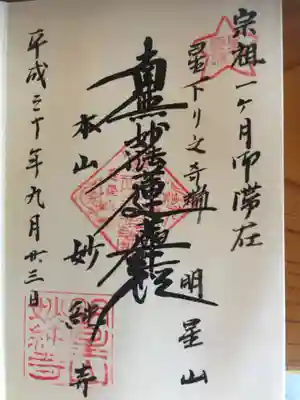 宗祖一ヶ月御滞在
星下り之寺 明星山
南無妙法蓮華経
本山 妙純寺
平成三十年九月廿三日
妙純寺